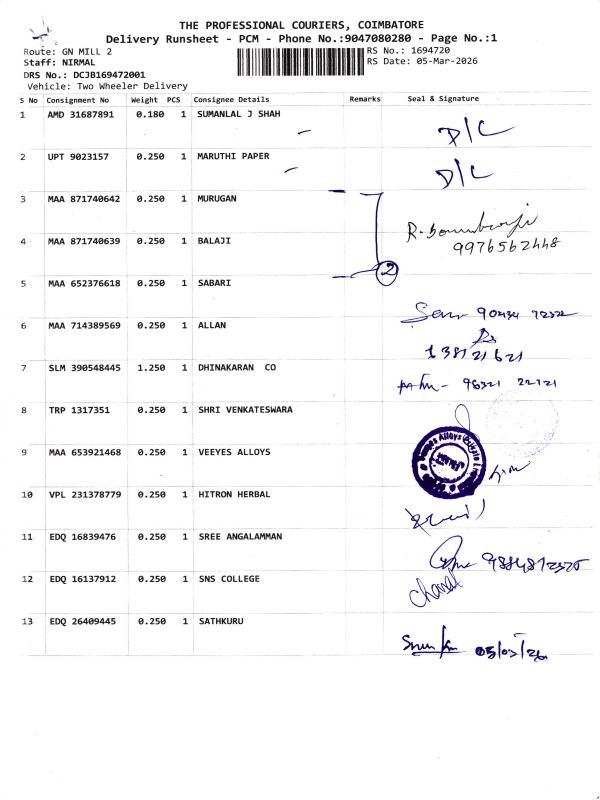 THE PROFESSIONAL COURIERS, COIMBATORE
Delivery Runsheet - PCM - Phone No.:9047080280 - Page No.:1
Route: GN MILL 2 RS No.: 1694720
Staff: NIRMAL RS Date: 05-Mar-2026
DRS No.: DCJB169472001
Vehicle: Two Wheeler Delivery
S No Consignment No Weight PCS Consignee Details Remarks Seal & Signature
1 AMD 31687891 0.180 1 SUMANLAL J SHAH D/C
2 UPT 9023157 0.250 1 MARUTHI PAPER D/C
3 MAA 871740642 0.250 1 MURUGAN
4 MAA 871740639 0.250 1 BALAJI 9976562448
2
5 MAA 652376618 0.250 1 SABARI
6 MAA 714389569 0.250 1 ALLAN
7 SLM 390548445 1.250 1 DHINAKARAN CO
8 TRP 1317351 0.250 1 SHRI VENKATESWARA
9 MAA 653921468 0.250 1 VEEYES ALLOYS
10 VPL 231378779 0.250 1 HITRON HERBAL
11 EDQ 16839476 0.250 1 SREE ANGALAMMAN
12 EDQ 16137912 0.250 1 SNS COLLEGE
13 EDQ 26409445 0.250 1 SATHKURU 05/03/26